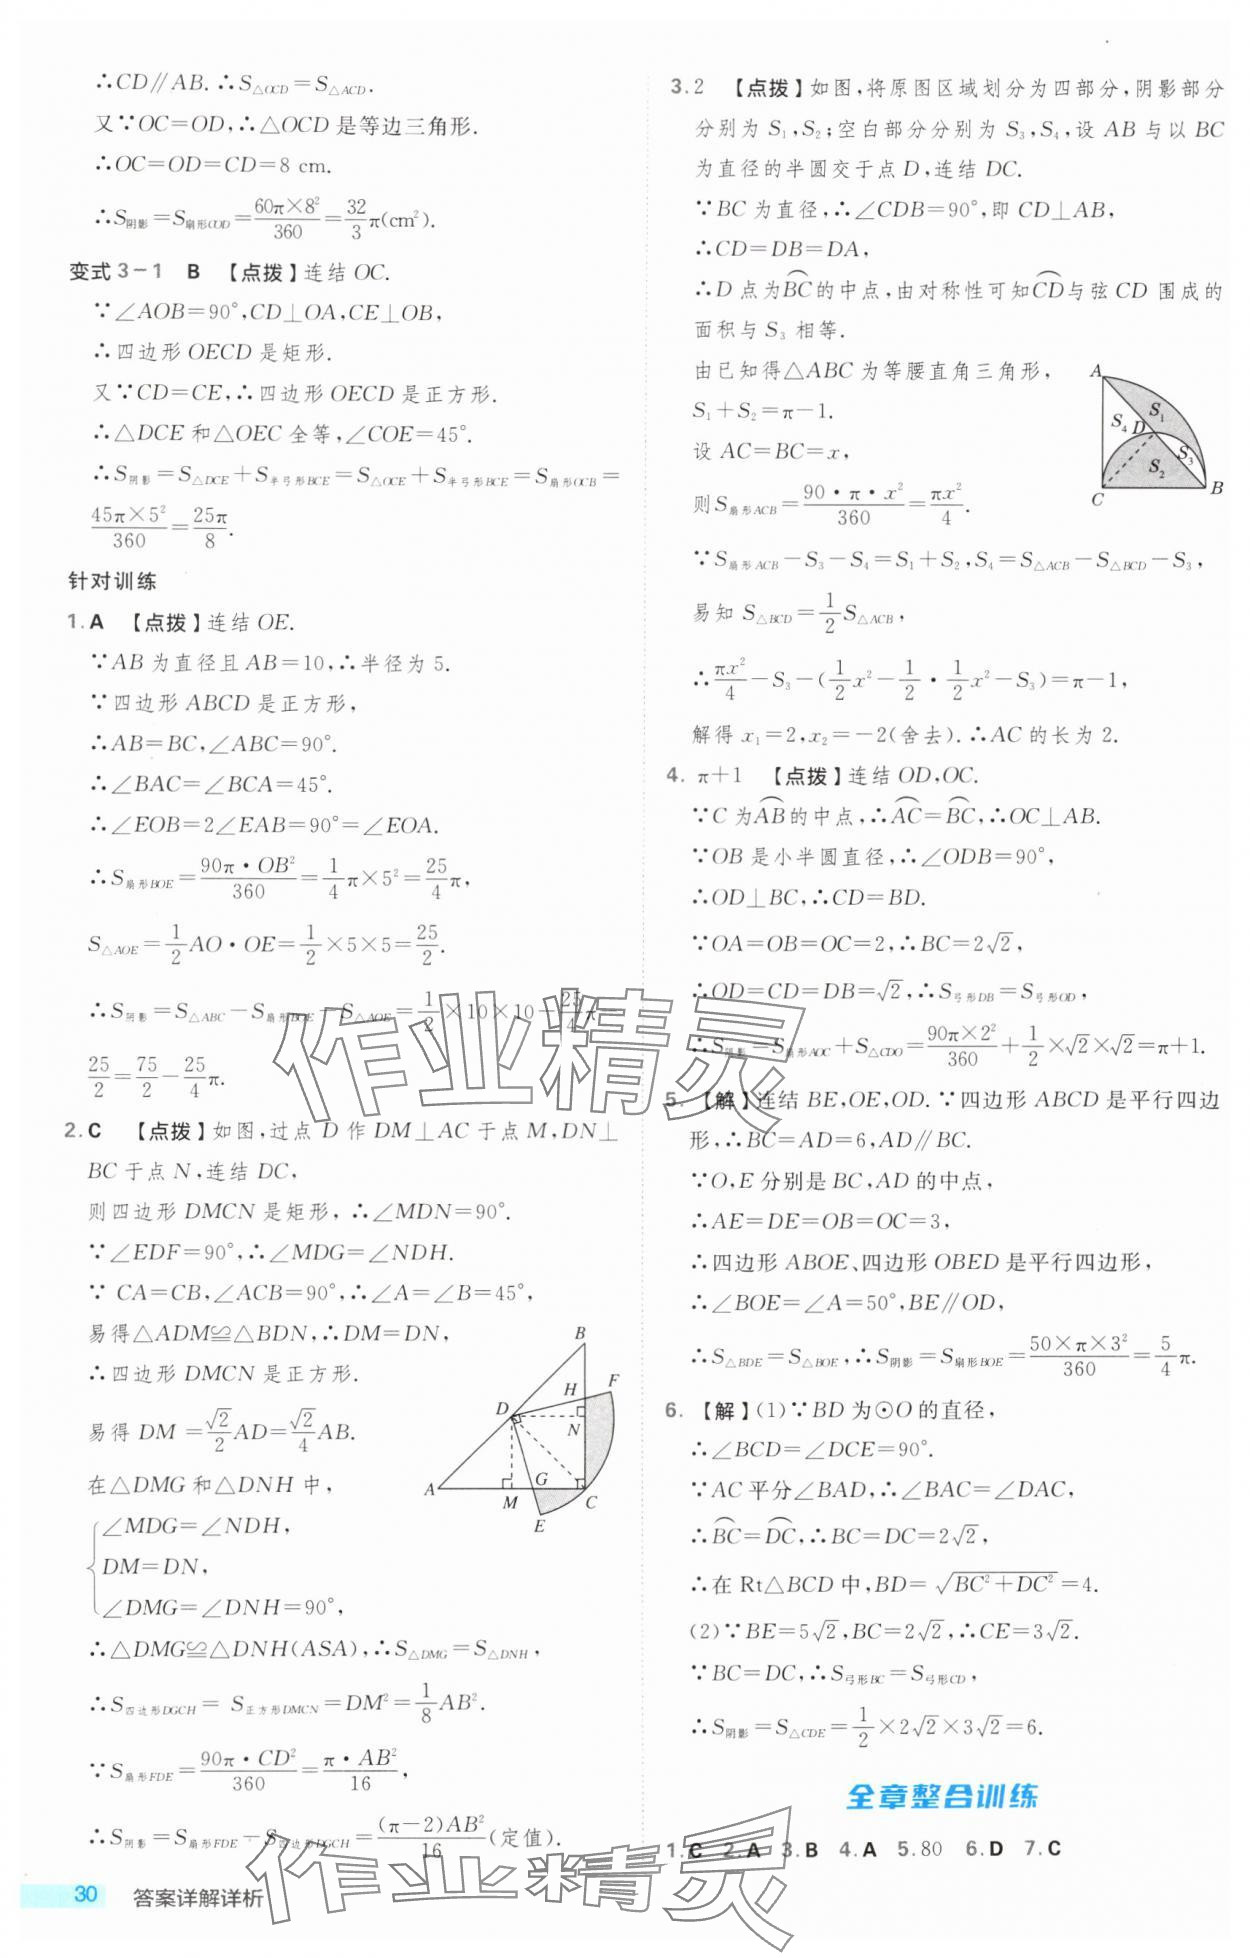 ∴CD∥AB. ∴S△OCD=S△ACD.
又∵OC=OD,∴△OCD是等边三角形.
∴OC=OD=CD=8 cm.
∴S阴影=S扇形COD=60π×8²/360=32/3π(cm²).
变式3-1 B 【点拨】连结OC.
∵∠AOB=90°,CD⊥OA,CE⊥OB,
∴四边形OECD是矩形.
又∵CD=CE,∴四边形OECD是正方形.
∴△DCE和△OEC全等,∠COE=45°.
∴S阴影=S△DCE+S半弓形BCE=S△OCE+S半弓形BCE=S扇形OCB=
45π×5²/360=25π/8.
针对训练
1.A 【点拨】连结OE.
∵AB为直径且AB=10,∴半径为5.
∵四边形ABCD是正方形,
∴AB=BC,∠ABC=90°.
∴∠BAC=∠BCA=45°.
∴∠EOB=2∠EAB=90°=∠EOA.
∴S扇形BOE=90π·OB²/360=1/4π×5²=25/4π,
S△AOE=1/2AO·OE=1/2×5×5=25/2.
∴S阴影=S△ABC-S扇形BOE-S△AOE=1/2×10×10-25/4π-
25/2=75/2-25/4π.
2.C 【点拨】如图,过点D作DM⊥AC于点M,DN⊥
BC于点N,连结DC,
则四边形DMCN是矩形,∴∠MDN=90°.
∵∠EDF=90°,∴∠MDG=∠NDH.
∵CA=CB,∠ACB=90°,∴∠A=∠B=45°,
易得△ADM≌△BDN,∴DM=DN,
∴四边形DMCN是正方形.
易得DM=√2/2AD=√2/4AB.
在△DMG和△DNH中,
∠MDG=∠NDH,
DM=DN,
∠DMG=∠DNH=90°,
B
H
F
D
N
G
A
M
C
E
∴△DMG≌△DNH(ASA),∴S△DMG=S△DNH,
∴S四边形DGCH=S正方形DMCN=DM²=1/8AB².
∵S扇形FDE=90π·CD²/360=π·AB²/16,
∴S阴影=S扇形FDE-S四边形DGCH=(π-2)AB²/16(定值).
30 答案详解详析
3.2 【点拨】如图,将原图区域划分为四部分,阴影部分
分别为S₁,S₂;空白部分分别为S₃,S₄,设AB与以BC
为直径的半圆交于点D,连结DC.
∵BC为直径,∴∠CDB=90°,即CD⊥AB,
∴CD=DB=DA,
∴D点为⌒BC的中点,由对称性可知⌒CD与弦CD围成的
面积与S₃相等.
由已知得△ABC为等腰直角三角形,
S₁+S₂=π-1.
设AC=BC=x,
A
S₁
S₄ D
S₃
S₂
C
B
则S扇形ACB=90·π·x²/360=πx²/4.
∵S扇形ACB-S₃-S₄=S₁+S₂,S₄=S△ACB-S△BCD-S₃,
易知S△BCD=1/2S△ACB,
∴πx²/4-S₃-(1/2x²-1/2·1/2x²-S₃)=π-1,
解得x₁=2,x₂=-2(舍去).∴AC的长为2.
4. π+1 【点拨】连结OD,OC.
∵C为⌒AB的中点,∴⌒AC=⌒BC,∴OC⊥AB.
∵OB是小半圆直径,∴∠ODB=90°,
∴OD⊥BC,∴CD=BD.
∵OA=OB=OC=2,∴BC=2√2,
∴OD=CD=DB=√2,∴S弓形DB=S弓形OD,
∴S阴影=S扇形AOC+S△CDO=90π×2²/360+1/2×√2×√2=π+1.
5. 【解】连结BE,OE,OD.∵四边形ABCD是平行四边
形,∴BC=AD=6,AD∥BC.
∵O,E分别是BC,AD的中点,
∴AE=DE=OB=OC=3,
∴四边形ABOE、四边形OBED是平行四边形,
∴∠BOE=∠A=50°,BE∥OD,
∴S△BDE=S△BOE,∴S阴影=S扇形BOE=50×π×3²/360=5/4π.
6. 【解】(1)∵BD为⊙O的直径,
∴∠BCD=∠DCE=90°.
∵AC平分∠BAD,∴∠BAC=∠DAC,
∴⌒BC=⌒DC,∴BC=DC=2√2,
∴在Rt△BCD中,BD=√(BC²+DC²)=4.
(2)∵BE=5√2,BC=2√2,∴CE=3√2.
∵BC=DC,∴S弓形BC=S弓形CD,
∴S阴影=S△CDE=1/2×2√2×3√2=6.
全章整合训练
1.C 2.A 3.B 4.A 5.80 6.D 7.C
作业精灵
作业精灵